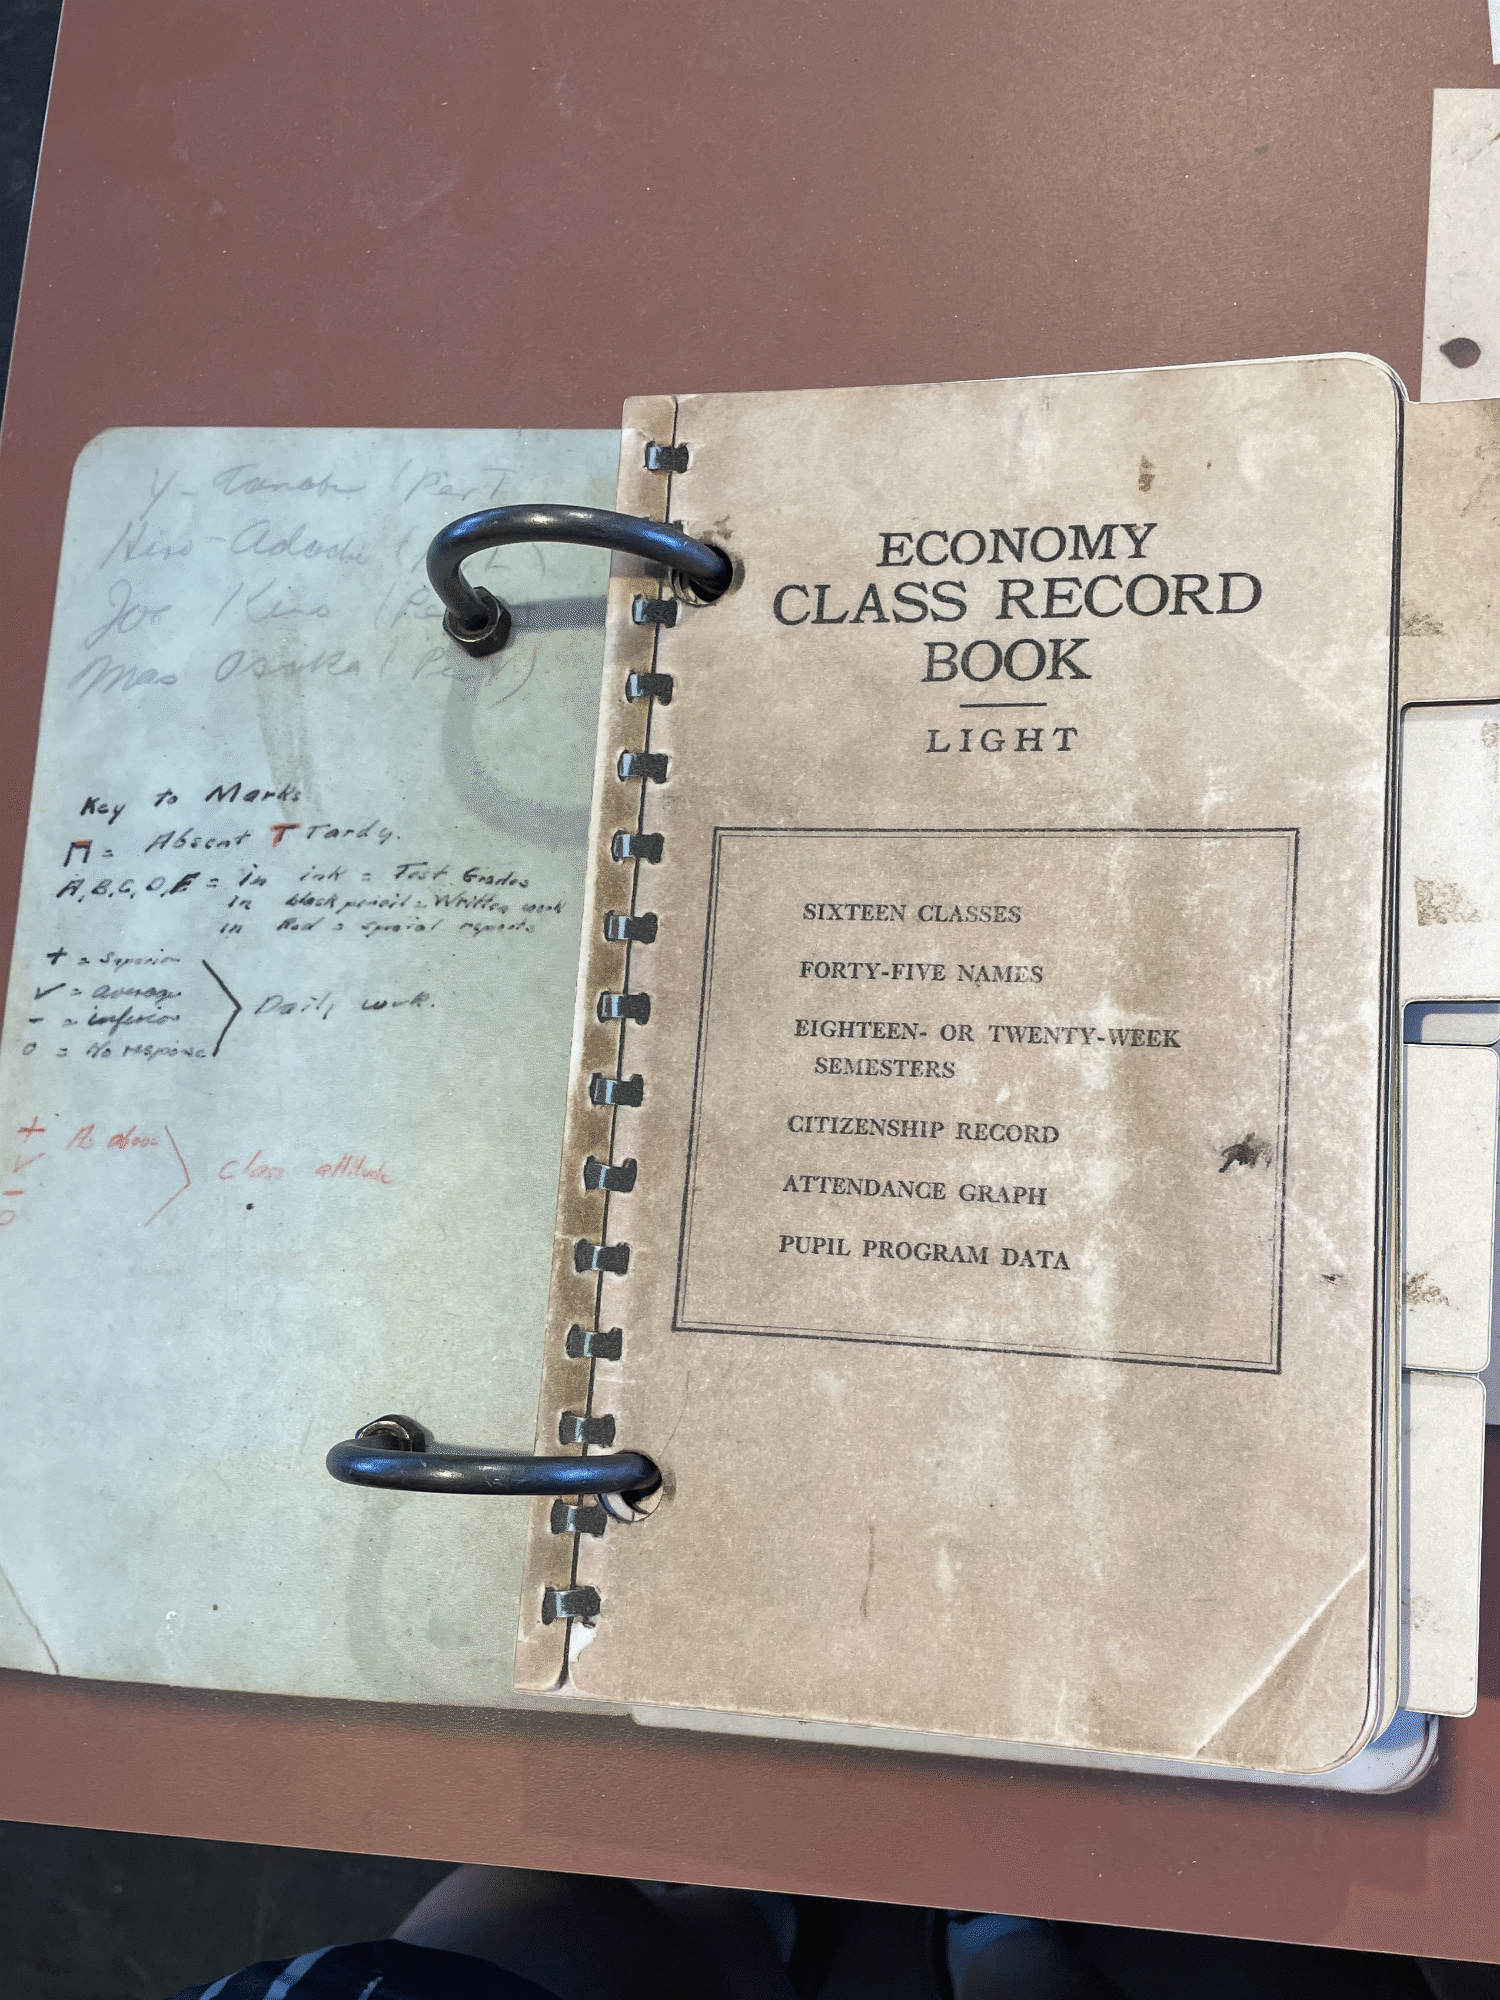 Y- Tanabe (Per I
Hiro Adachi (Per I)
Joe Kino (Per
Mas Osaka (Per V)
Key to Marks
Π = Absent T Tardy.
A, B, C, D, E = in ink = Test Grades
in black pencil = Written work
in Red = special reports
+ = Superior
✓ = average
- = inferior
0 = No response
Daily work.
+ As above
✓
-
0
Class attitude
ECONOMY
CLASS RECORD
BOOK
LIGHT
SIXTEEN CLASSES
FORTY-FIVE NAMES
EIGHTEEN- OR TWENTY-WEEK
SEMESTERS
CITIZENSHIP RECORD
ATTENDANCE GRAPH
PUPIL PROGRAM DATA